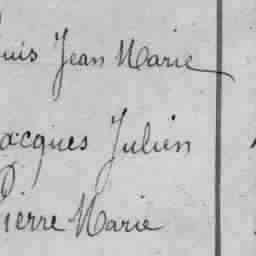 uis Jean Marie
acques Julien
Pierre Marie